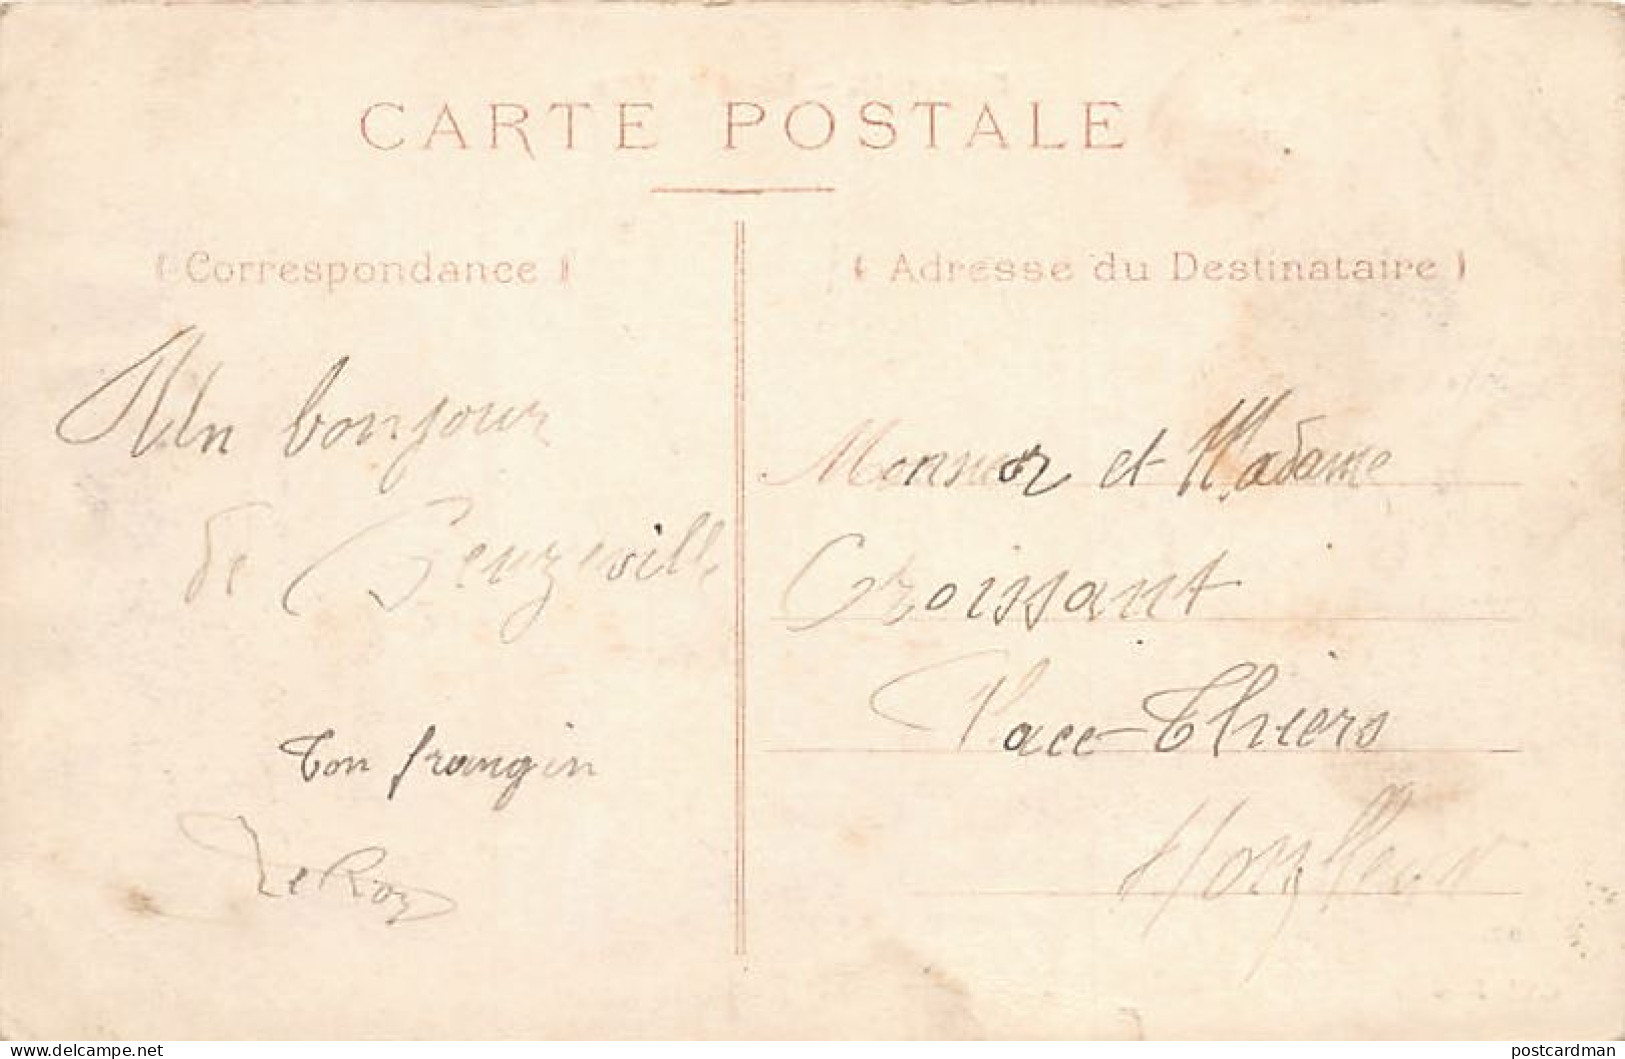 CARTE POSTALE
( Correspondance )
Un bonjour
de Beuzeville
Ton frangin
LeRoy
( Adresse du Destinataire )
Monsieur et Madame
Croissant
Place Thiers
Honfleur
www.delcampe.net
postcardman